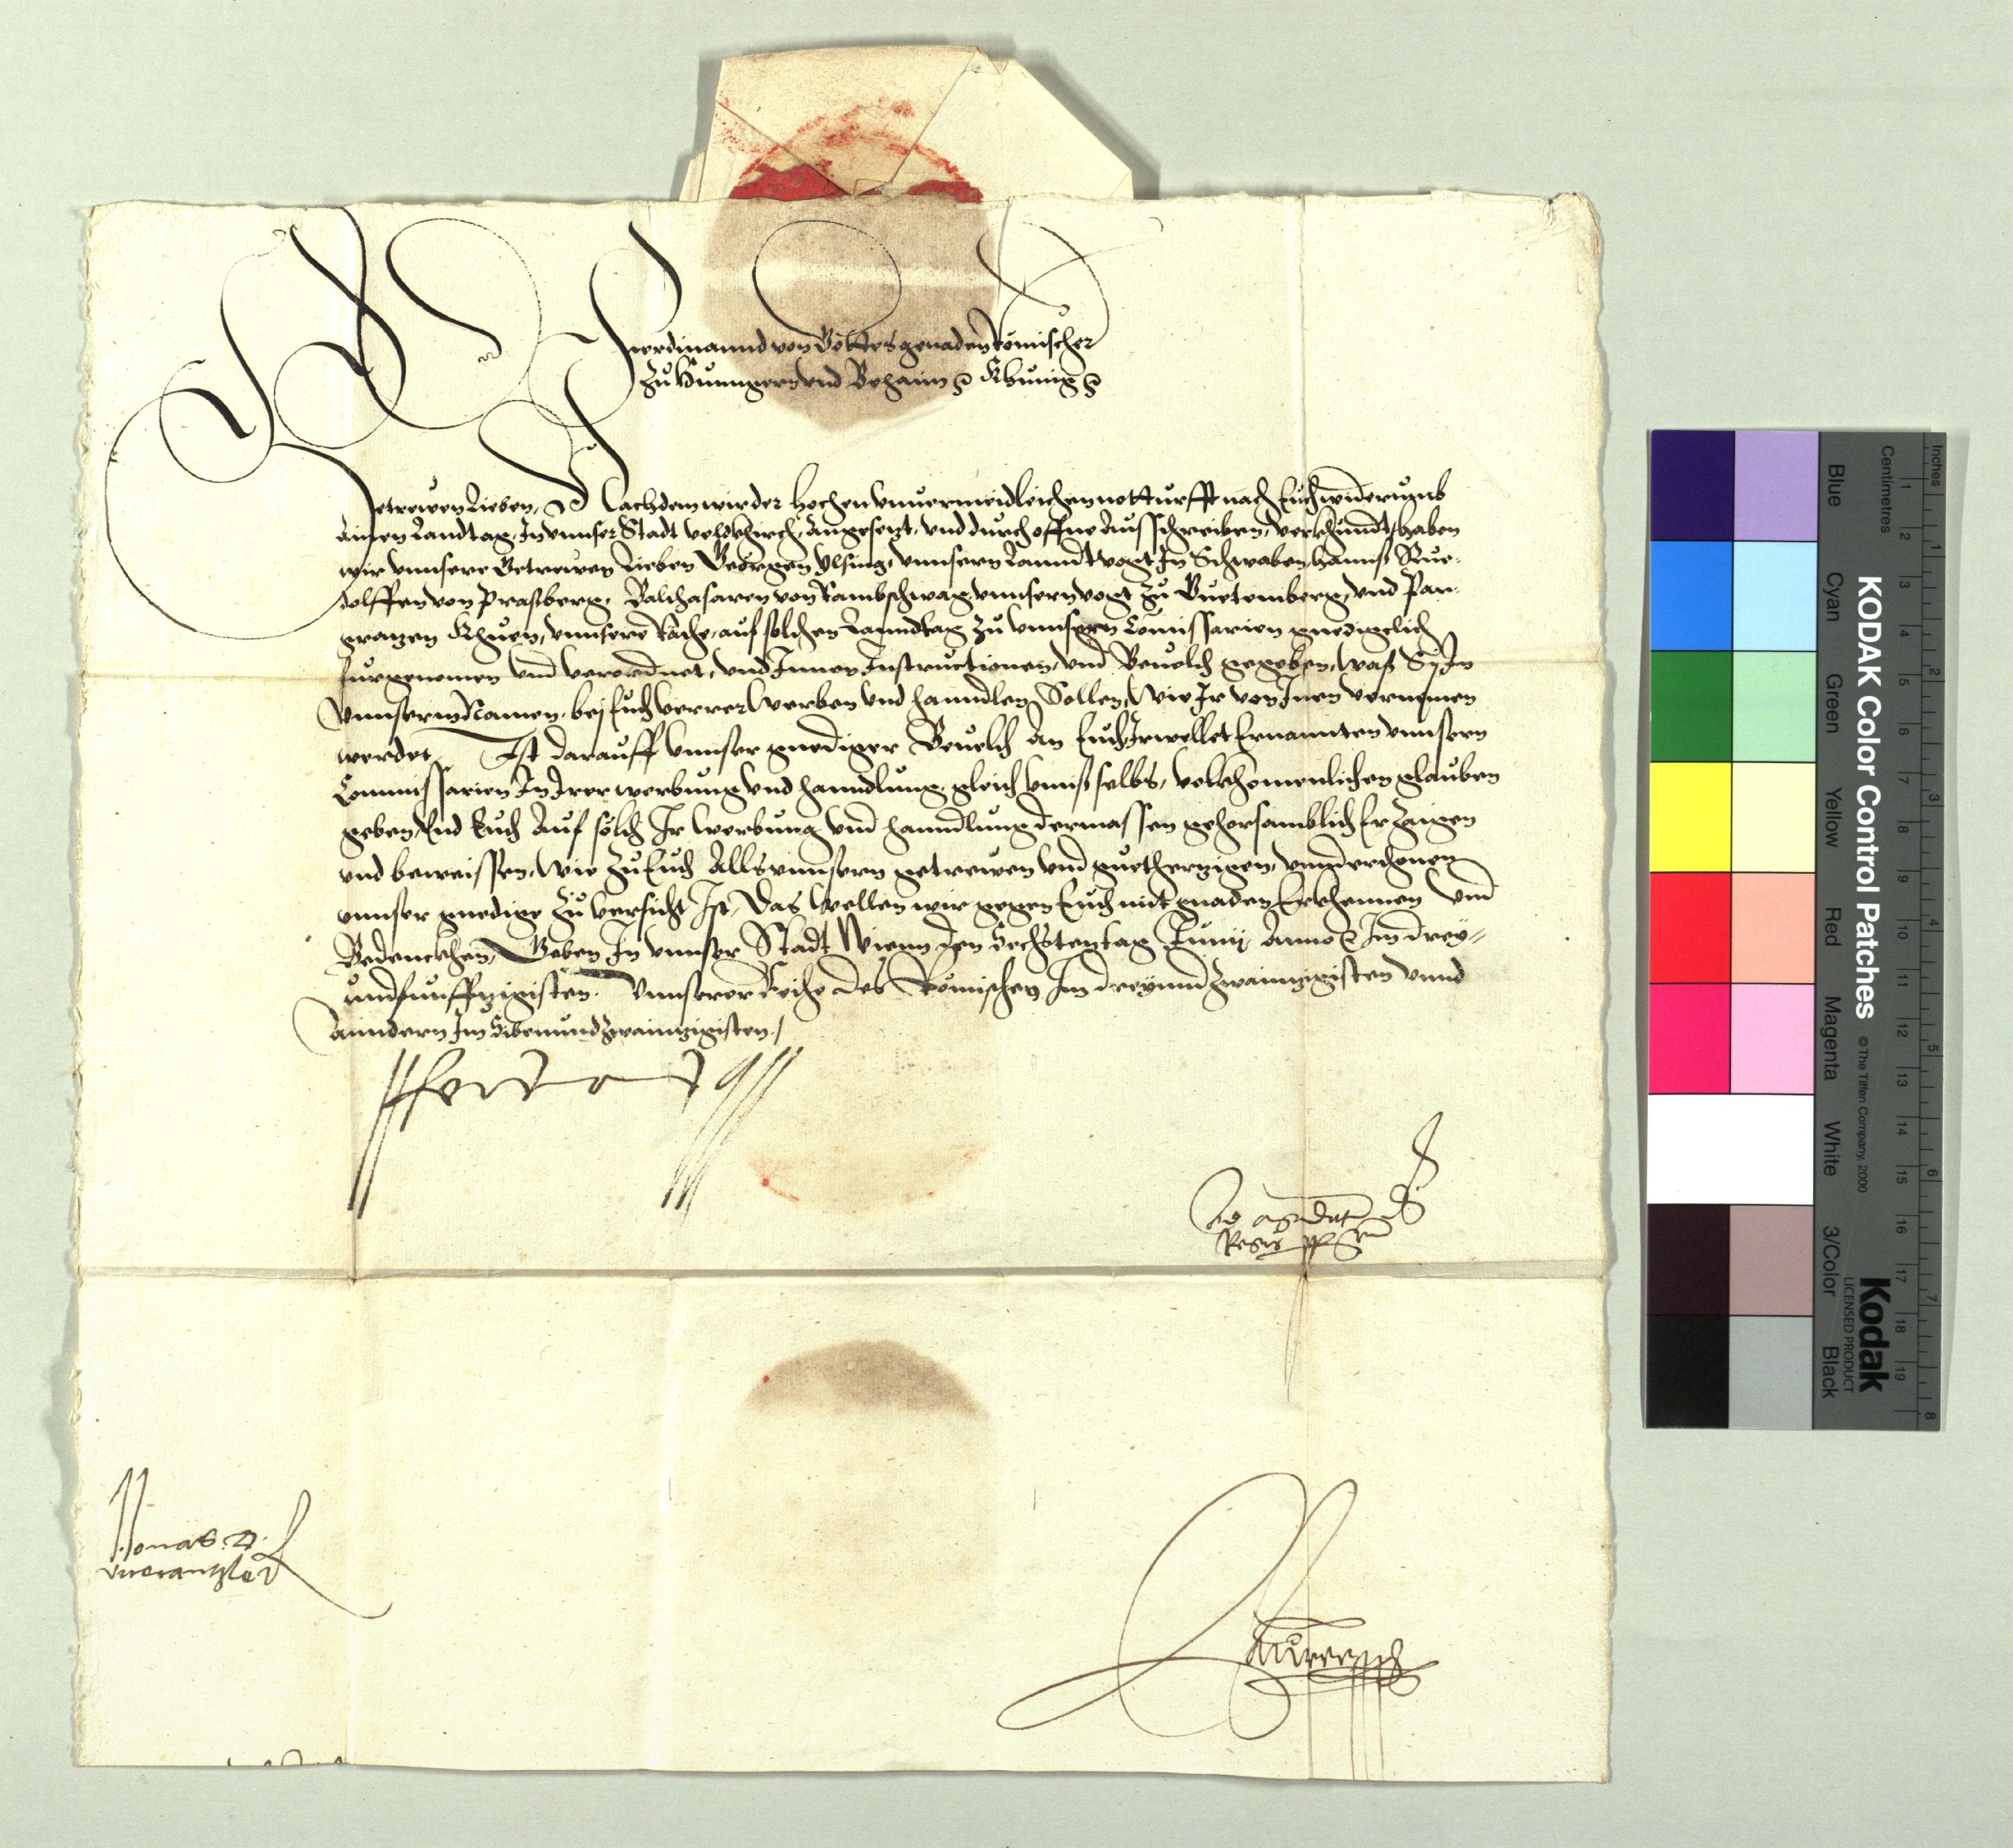 Ferdinannd von Gottes genaden Römischer
zu Hunngern und Behaim &c Khünig &c
Getrewen Lieben, Nachdem wir der hochen unuermeidleichen notturfft nach Euch widerumb
Ainen Landtag, In unnser Stadt Veldkhirch, Angesetzt, und durch offne Ausschreiben, verkhundt, haben
wir unnsere Getrewen Lieben Geörgen Ylsung, unnsern Lanndtvogt In Schwaben, Hanns Rue-
dolffen von Praßberg, Balthasaren von Rambschwag unnsern vogt zu Guetemberg, und Pan-
gratzen Khuen, unnsere Räthe, auf solchen Lanndtag zu unnsern Comissarien gnedigelich
furgenomen und verordnet, und Innen Instructionen, und Beuelch gegeben, was Sy In
unnserm Namen, bej Euch verrer werben und hanndlen Sollen, Wie Ir von Inen vernemen
werdet, Ist darauff unnser gnediger Beuelch An Euch, Ir wellet Ernannten unnsern
Commissarien In Irer werbung und hanndlung, gleich unns selbs, volkhomenlichen glauben
geben, Und Euch Auf solch Ir werbung und hanndlung dermassen gehorsamblich Erzaigen
und beweissen, Wie zu Euch Alls unnsern getrewen und guethertzigen, unnderthonen
unnser gnedige zuversicht Ist, Das wellen wir gegen Euch mit gnaden Erkhennen und
Bedenckhen, Geben In unnser Stadt Wienn den Sechstentag Junij Anno &c Im drey-
undfunffzigisten. Unnserer Reiche des Römischen Im dreyundzwaintzigisten unnd
Anndern Im Sibenundzwaintzigisten./
Ferdinand
Ad mandatum D
Regis pp
Jonas D.
vicecantzler